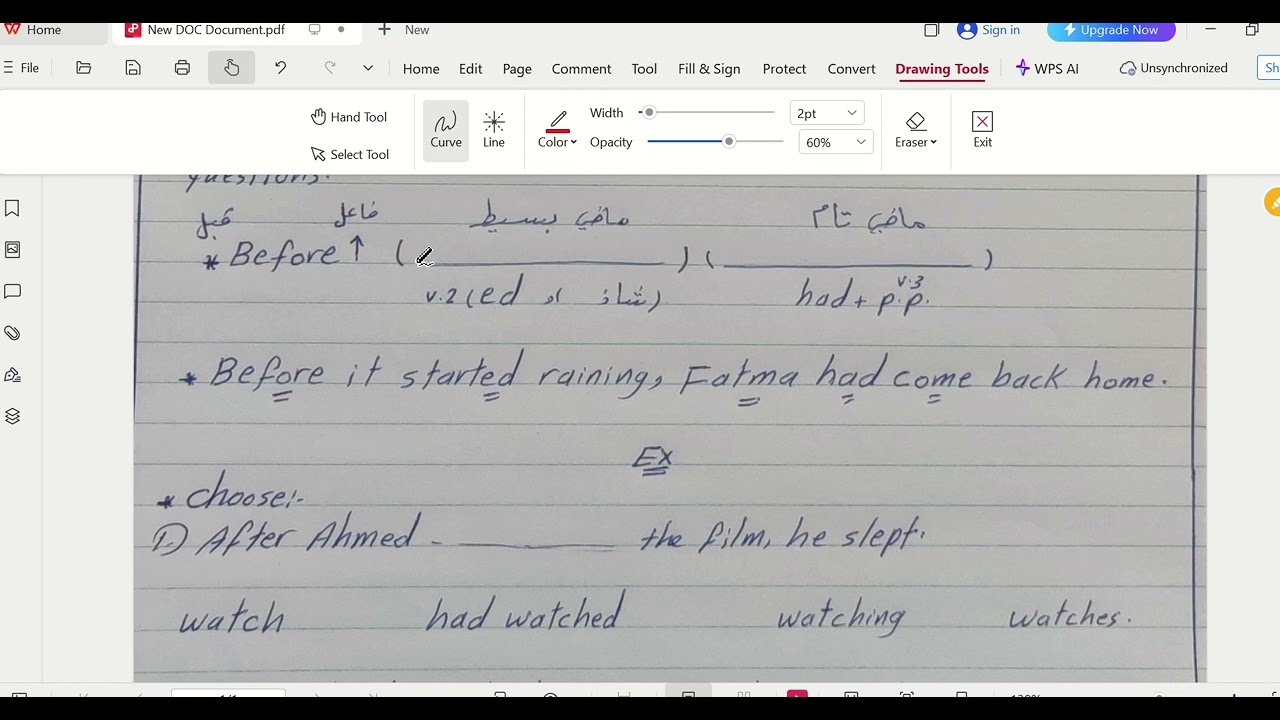 Home New DOC Document.pdf + New Sign in Upgrade Now
File Home Edit Page Comment Tool Fill & Sign Protect Convert Drawing Tools WPS AI Unsynchronized Sh
Hand Tool Select Tool Curve Line Color Width 2pt Opacity 60% Eraser Exit
questions.
قبل فاعل ماضي بسيط ماضي تام
* Before ↑ ( ________ ) ( ________ )
v.2 (ed او شاذ) had + p.p. v.3
* Before it started raining, Fatma had come back home.
Ex
* choose:-
1) After Ahmed - ________ the film, he slept.
watch had watched watching watches.